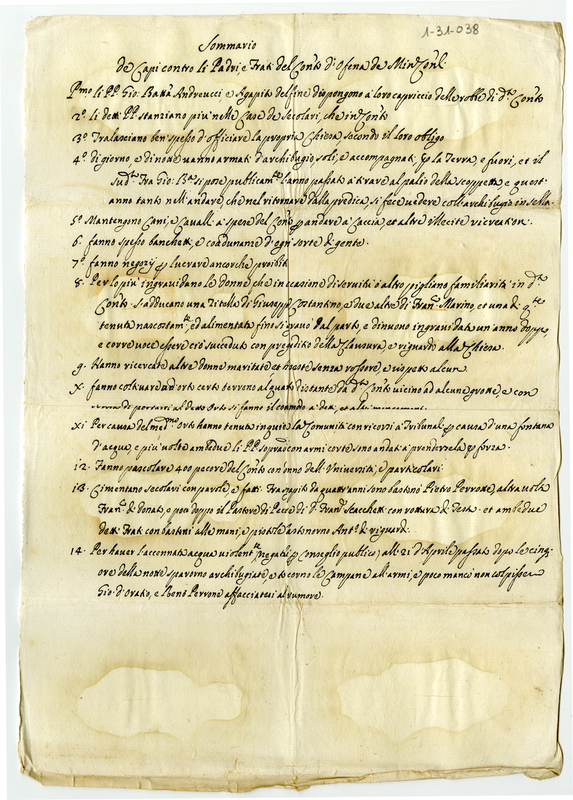 1-31-038
Sommario
de Capi contro li Padri, e Frati del Conto d'Ofena de Min: Conli
Pmo li PP. Gio: Batta Andreucci, e Agapito del fine dispongono a loro capriccio delle robbe di do Conto
2o li detti PP. stanziano più nelle Case de Secolari, che in Conto
3o Tralasciano ben spesso d'officiare la propria Chiesa secondo il loro obligo
4o di giorno, e di notte vanno armati d'archibugio, soli, e accompagnati, p la Terra, e fuori, et il
Sudo Fra Gio: Bta si pose publicamte l'anno passato a tirare al palio della scoppetta, e quest'
anno tanto nell'andare, che nel ritornare dalla predica si fece vedere coll'archibugio in sella
5o Mantengono Cani, e Cavalli a spese del Conto p andare a Caccia, et altre illecite ricreationi
6. fanno spesso banchetti, e condunanze d'ogni sorte di gente.
7o fanno negozij p lucrare ancorche proibiti
8. Per lo più ingravidano le donne, che in occasione di servitù, o altro pigliano familiarità in do
Conto. Si adducano una Zitella di Giuseppe Costantino, e due altre di Franco Marino, et una di qte
tenuta nascostamte, ed alimentata fino si gravò dal parto, e di nuovo ingravidata un'anno doppo,
e corre voce esser ciò succeduto con pregiudito della Clausura, e riguardo alla Chiesa.
9. Hanno ricercate altre donne maritate, et honeste senza rossore, e rispetto alcuno.
X. fanno coltivare ad orto certo terreno alquanto distante da do Conto vicino ad alcune grotte, e con
di portarsi al detto Orto si fanno il commodo a detti, et altri
xi Per causa del medmo Orto hanno tenuta inquieta la Comunità con ricorsi a Tribunali p causa d'una fontana
d'acqua, e più volte ambedue li PP. sopradi con armi corte sono andati a prendersela p forza.
12. Fanno pascolare 400 pecore del Conto con danno dell'Università, e particolari.
13. Cimentano secolari con parole, e fatti. Fra Agapito da quattr'anni sono bastonò Pietro Perrotte, altra volta
Franco di Donato, e poco doppo il Pastore di Pecore di D. Franco Stacchetti con rottura di testa. et ambedue
detti Frati con bastoni alle mani, e pistole bastonorno Anto di
14. Per haver l'accennata acqua violente (negata p Conseglio publico) all: 21 d'Aprile passato dopo le cinq
ore della notte sparorno archibugiate, et tocorno le Campane all'armi, e poco mancò non colpissero
Gio: d'Orazio, e Perrone affacciatesi al rumore.